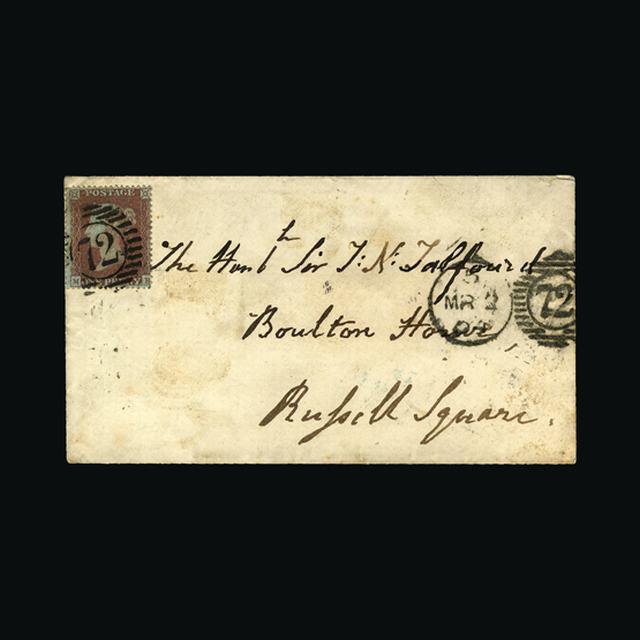 POSTAGE
72
The Honb th Sir T: N: Talfourd
Boulton House
MR 2
72
Russell Square.